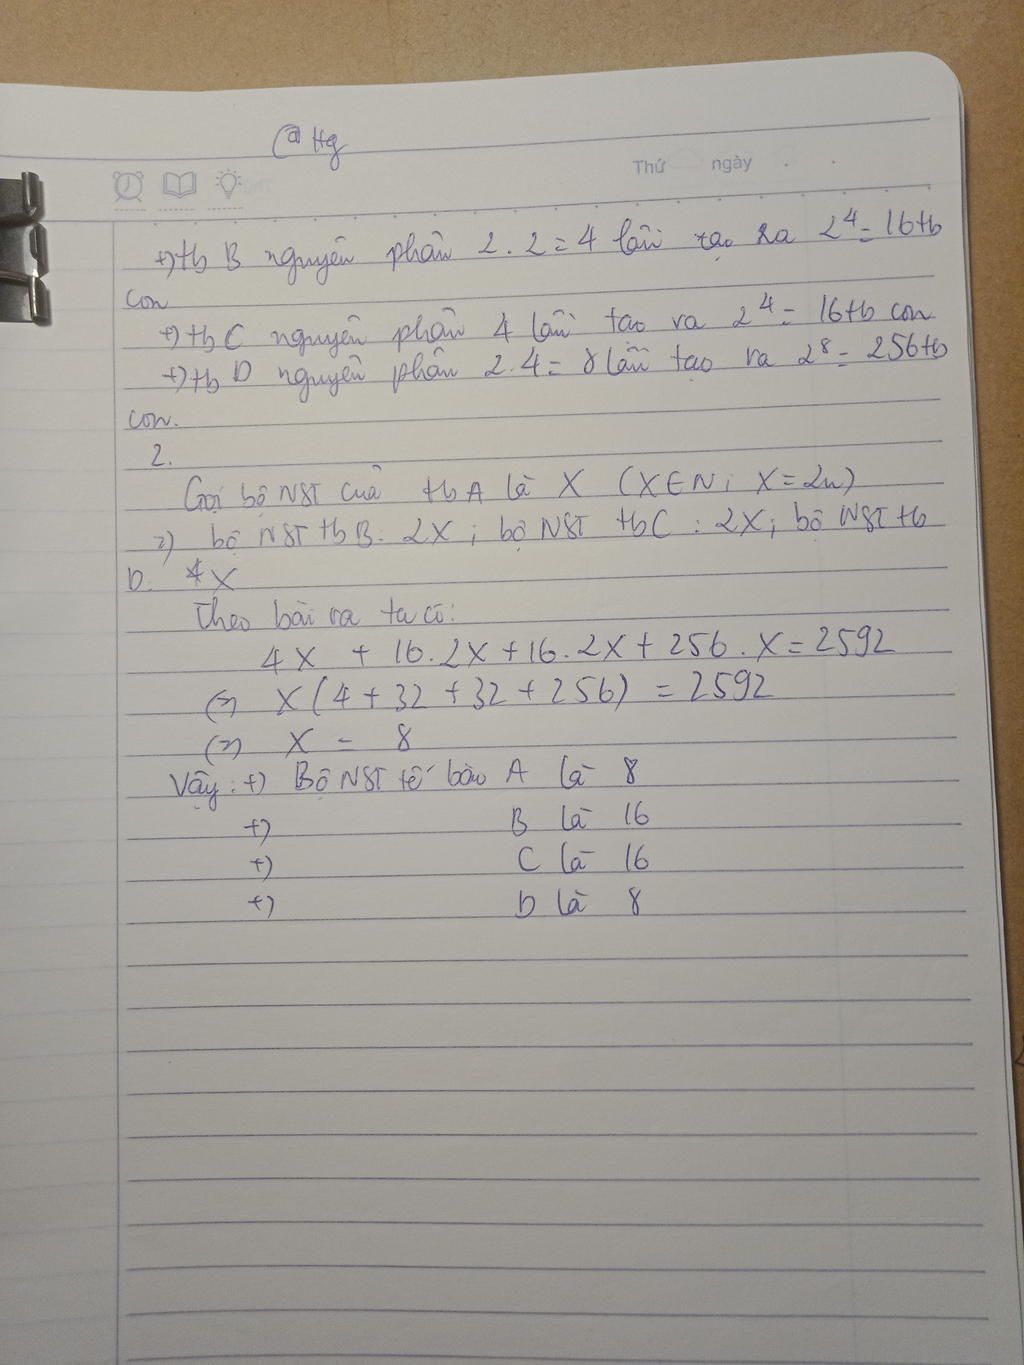 @Hg
Thứ ngày
+) tb B nguyên phân 2.2=4 lần tạo ra 2⁴=16tb
con
+) tb C nguyên phân 4 lần tạo ra 2⁴= 16tb con
+) tb D nguyên phân 2.4= 8 lần tạo ra 2⁸= 256tb
con.
2.
Gọi bộ NST của tb A là X (X∈N; X=2n)
=) bộ NST tb B: 2X; bộ NST tb C: 2X; bộ NST tb
D: X
Theo bài ra ta có:
4X + 16.2X+16.2X+256.X=2592
(=) X(4+32+32+256) = 2592
(=) X = 8
Vậy: +) Bộ NST tế bào A là 8
+) B là 16
+) C là 16
+) D là 8